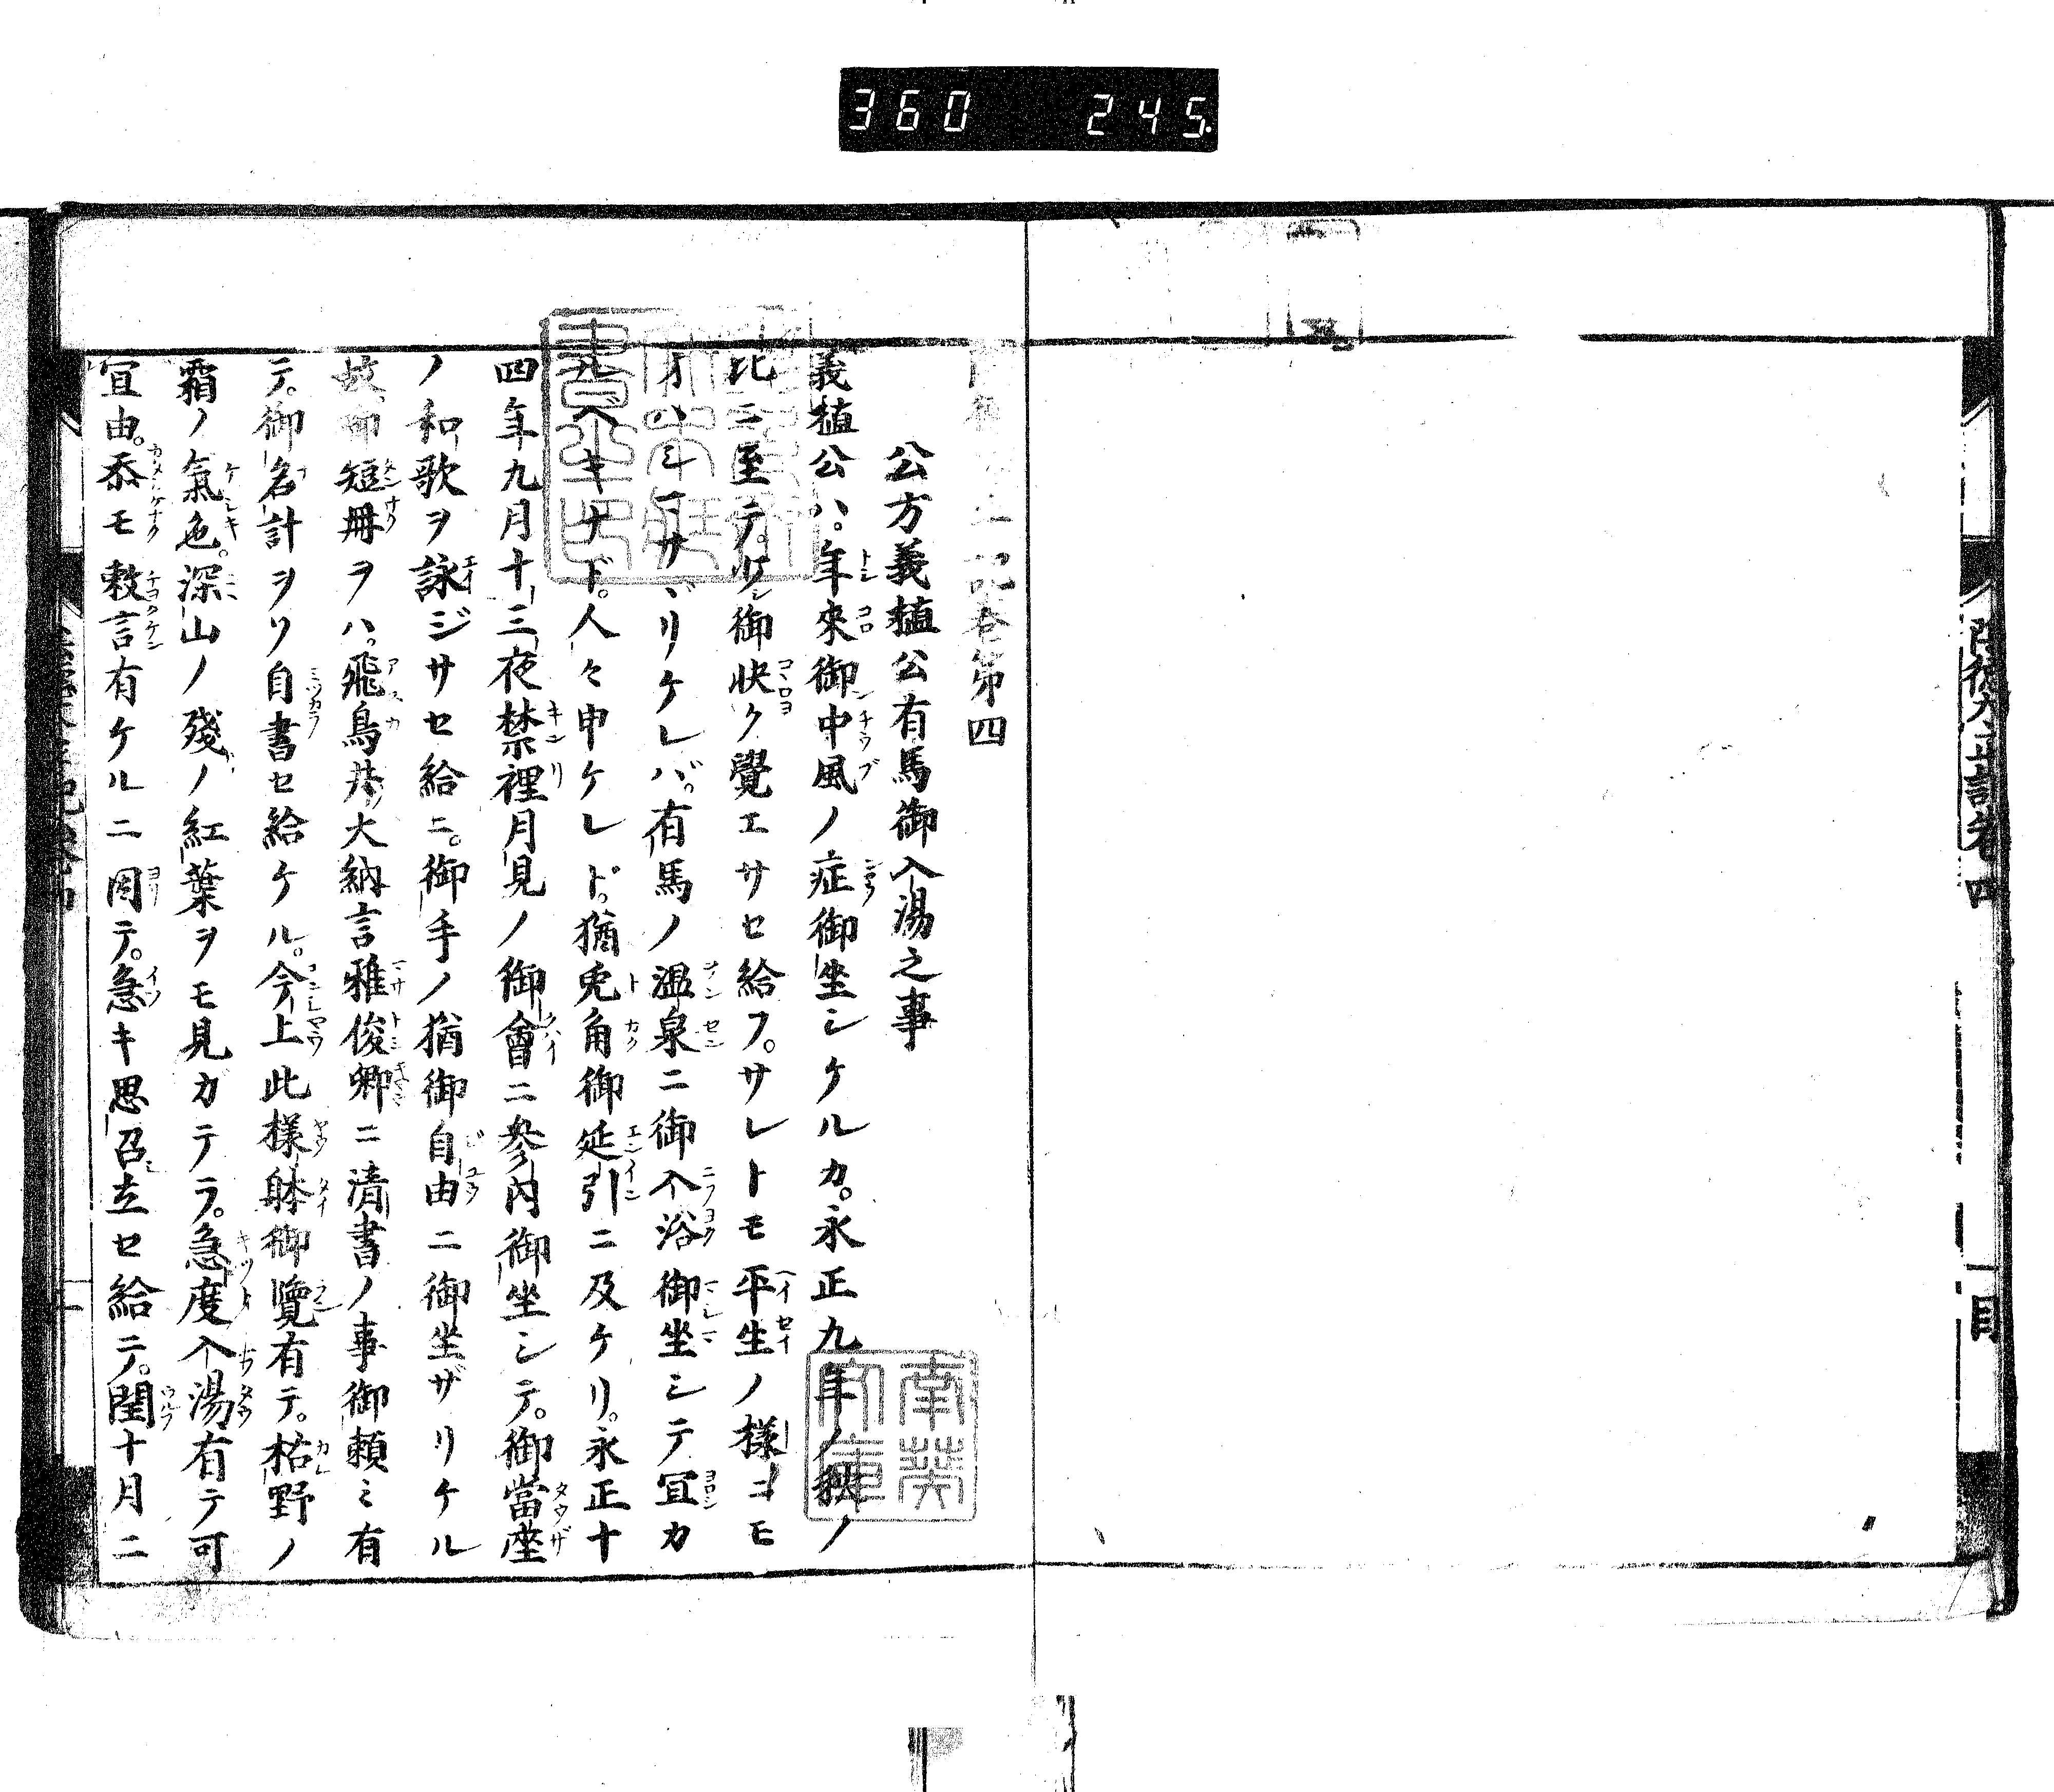 360 245
陰徳太平記卷四
一目
卷第四
公方義植公有馬御入湯之事
義植公ハ。年來御中風ノ症御坐シケルカ。永正九年ノ秋ノ
比ニ至テ。少シ御快ク覺エサセ給フ。サレトモ平生ノ樣ニモ
ヲハシマサヾリケレバ。有馬ノ溫泉ニ御入浴御坐シテ宜カ
ルベキナド。人々申ケレド。猶兎角御延引ニ及ケリ。永正十
四年九月十三夜禁裡月見ノ御會ニ參内御坐シテ。御當座
ノ和歌ヲ詠ジサセ給ニ。御手ノ猶御自由ニ御坐ザリケル
故。御短冊ヲハ。飛鳥井大納言雅俊卿ニ清書ノ事御頼ミ有
テ。御名計ヲソ自書セ給ケル。今上此樣躰御覽有テ。枯野ノ
霜ノ氣色。深山ノ殘ノ紅葉ヲモ見ガテラ。急度入湯有テ可
宜由。忝モ敕言有ケルニ因テ。急キ思召立セ給ニテ。閏十月二
南葵文庫